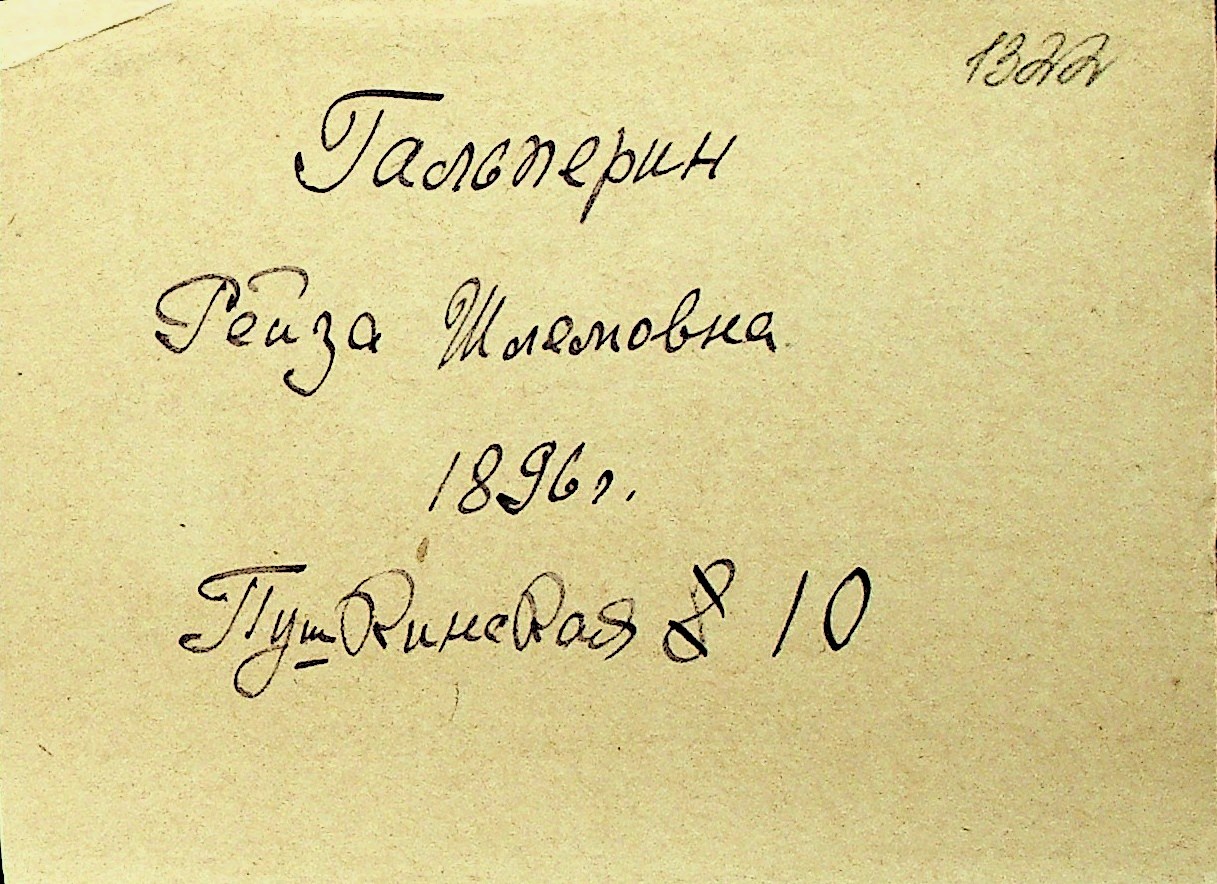 1322
Гальперин
Рейза Шлемовна
1896 г.
Пушкинская 8 10